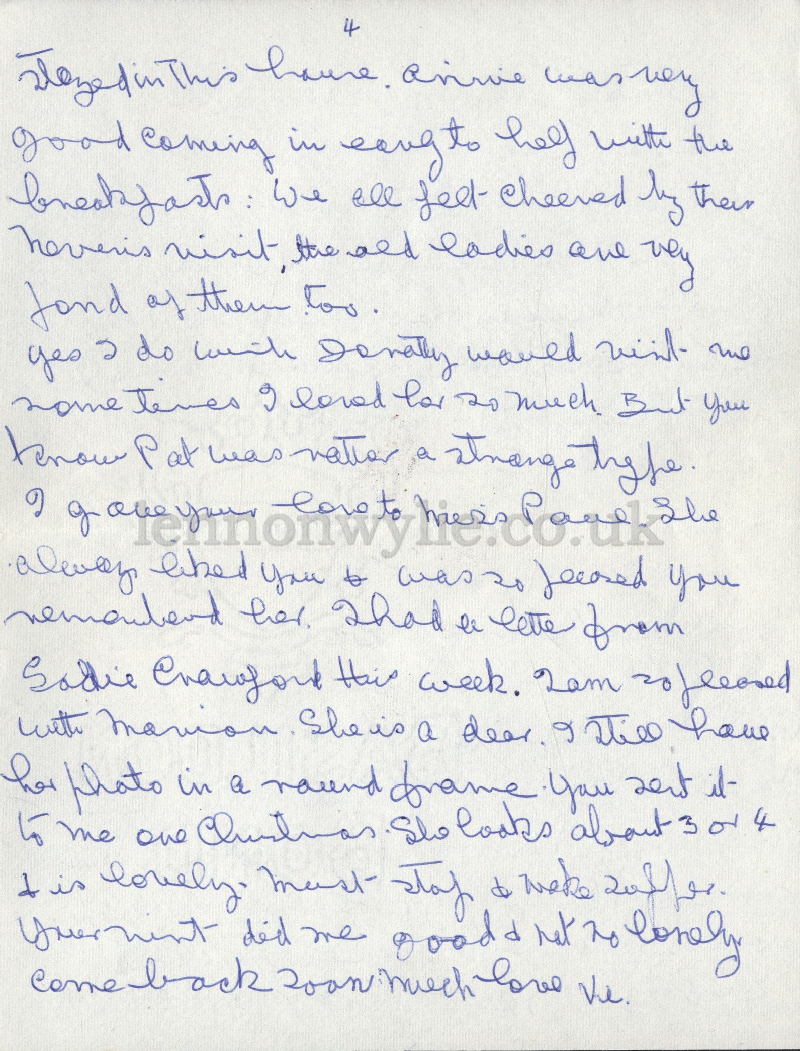 4
stayed in this house. Annie was very
good coming in early to help with the
breakfasts: We all felt cheered by
visit, the old ladies are very
fond of them too.
yes I do wish Dorothy would visit me
sometimes I loved her so much. But you
know Pat was rather a strange type.
I gave your love to Miss Pave. She
always liked you & was so pleased you
rememberd her. I had a letter from
Sadie Crawford this week. I am so pleased
with Marion. She is a dear. I still have
her photo in a round frame. You sent it
to me one Christmas. She looks about 3 or 4
& is lovely. Must stop & make supper.
Your visit did me good & not so lonely.
come back soon much love Vie.
lennonwylie.co.uk